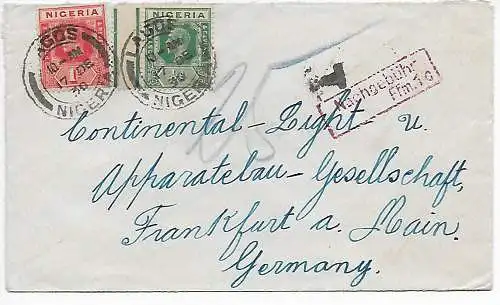 NIGERIA NIGERIA
LAGOS LAGOS
10 - AM
17 DE
36
NIGERIA NIGERIA
T
25
Nachgebühr
Ffm. 10
Continental-Light u.
Apparatebau-Gesellschaft,
Frankfurt a. Main.
Germany.